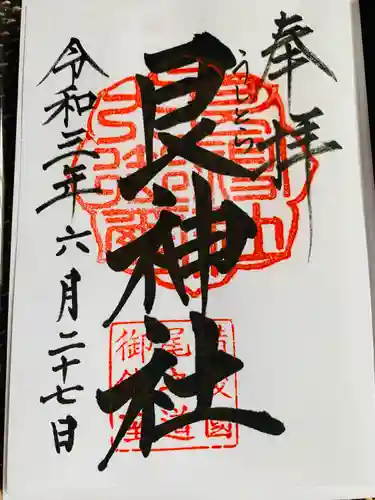 奉拝
うしとら
艮神社
令和三年六月二十七日
備後國
尾道
御鎮座